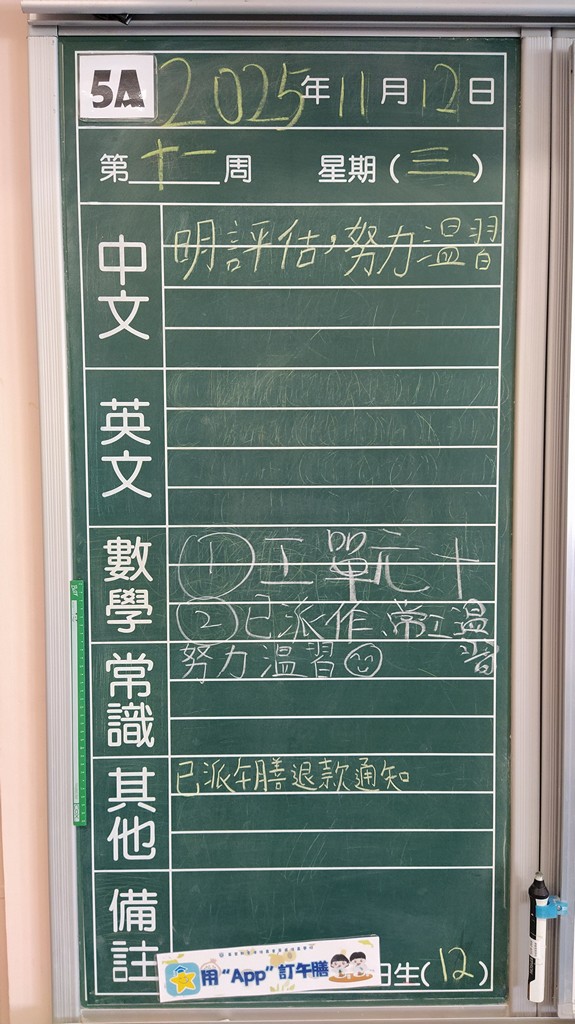 5A 2025年11月12日
第十一周 星期(三)
中文
明評估,努力溫習
英文
數學
① 工單元十
② 已派作、常工溫習
常識
努力溫習
其他
已派午膳退款通知
備註
用“App”訂午膳
日生(12)